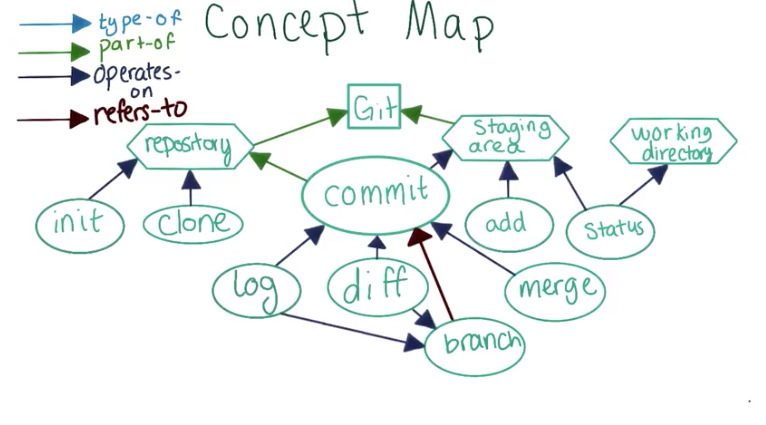 type-of
part-of
operates-
on
refers-to
Concept Map
Git
repository
Staging
area
working
directory
commit
init
clone
add
status
log
diff
merge
branch